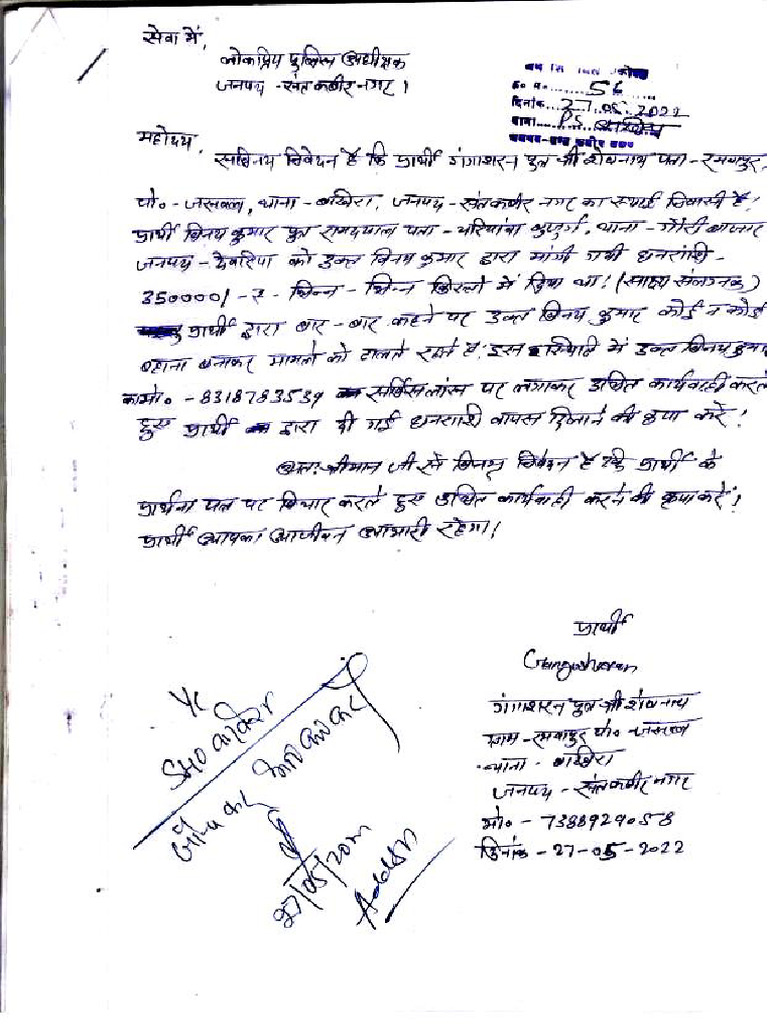 सेवा में,
लोकप्रिय पुलिस अधीक्षक
जनपद - संत कबीर नगर।
56
दिनांक 27.05.2022
थाना PS बखिरा
महोदय,
सविनय निवेदन है कि प्रार्थी गंगाशरन पुत्र श्री शेषनाथ पता - रमवापुर,
पो० - जसवल, थाना - बखिरा, जनपद - संत कबीर नगर का स्थाई निवासी है।
प्रार्थी विनय कुमार पुत्र रामदयाल पता - बुजुर्ग, थाना - गौरी बाजार
जनपद - देवरिया को उक्त विनय कुमार द्वारा मांगी गयी धनराशि -
350000/- रु भिन्न - भिन्न किस्तो में दिया था। (साक्ष्य संलग्नक)
प्रार्थी द्वारा बार - बार कहने पर उक्त विनय कुमार कोई न कोई
बहाना बनाकर मामले को टालते रहते है, इस परिस्थिति में उक्त विनय कुमार
का मो० - 8318783539 सर्विसलांस पर लगाकर उचित कार्यवाही करते
हुए प्रार्थी द्वारा दी गई धनराशी वापस दिलाने की कृपा करे।
अतः श्रीमान जी से विनम्र निवेदन है कि प्रार्थी के
प्रार्थना पत्र पर विचार करते हुए उचित कार्यवाही करने की कृपा करें।
प्रार्थी आपका आजीवन आभारी रहेगा।
प्रार्थी
Gangasharan
गंगाशरन पुत्र श्री शेषनाथ
ग्राम - रमवापुर पो० - जसवल
थाना - बखिरा
जनपद - संत कबीर नगर
मो० - 7388929058
दिनांक - 27-05-2022
SHO बखिरा
जाँच कर आव० कार्य० करें
27/05/2022
Addl SP